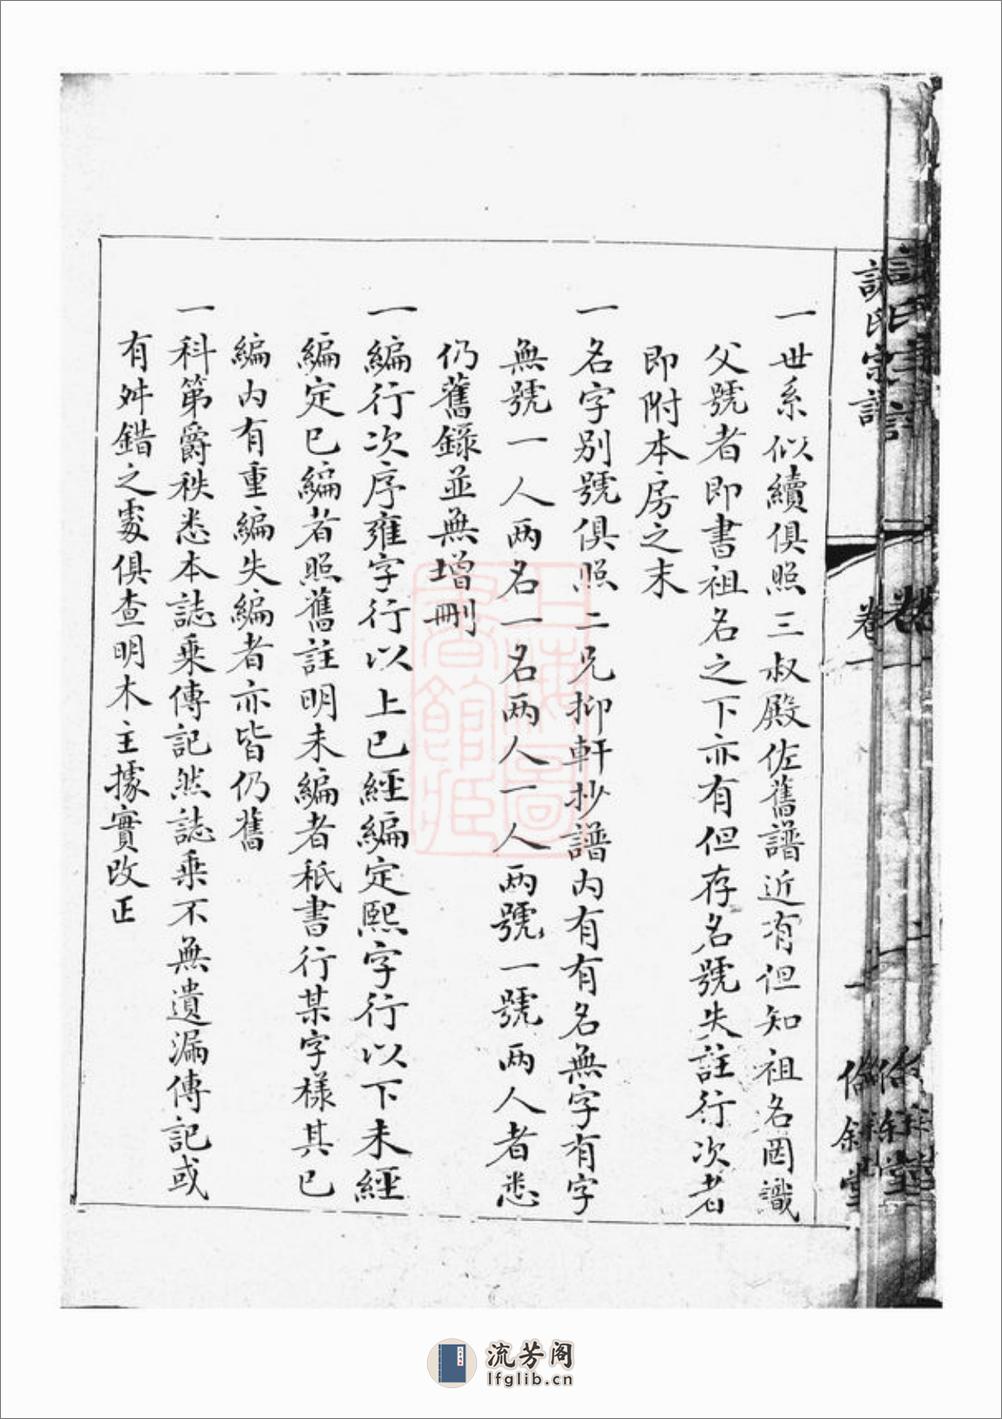 一世系似續俱照三叔殿佐舊譜近有但知祖名罔識
父號者即書祖名之下亦有但存名號失註行次者
即附本房之末
一名字別號俱照二兄抑軒抄譜內有有名無字有字
無號一人兩名一名兩人一人兩號一號兩人者悉
仍舊錄並無增刪
一編行次序雍字行以上已經編定熙字行以下未經
編定已編者照舊註明未編者秖書行某字樣其已
編內有重編失編者亦皆仍舊
一科第爵秩悉本誌乘傳記然誌乘不無遺漏傳記或
有舛錯之處俱查明木主據實改正
氏宗譜
卷一
上海圖
書館藏
流芳阁
lfglib.cn